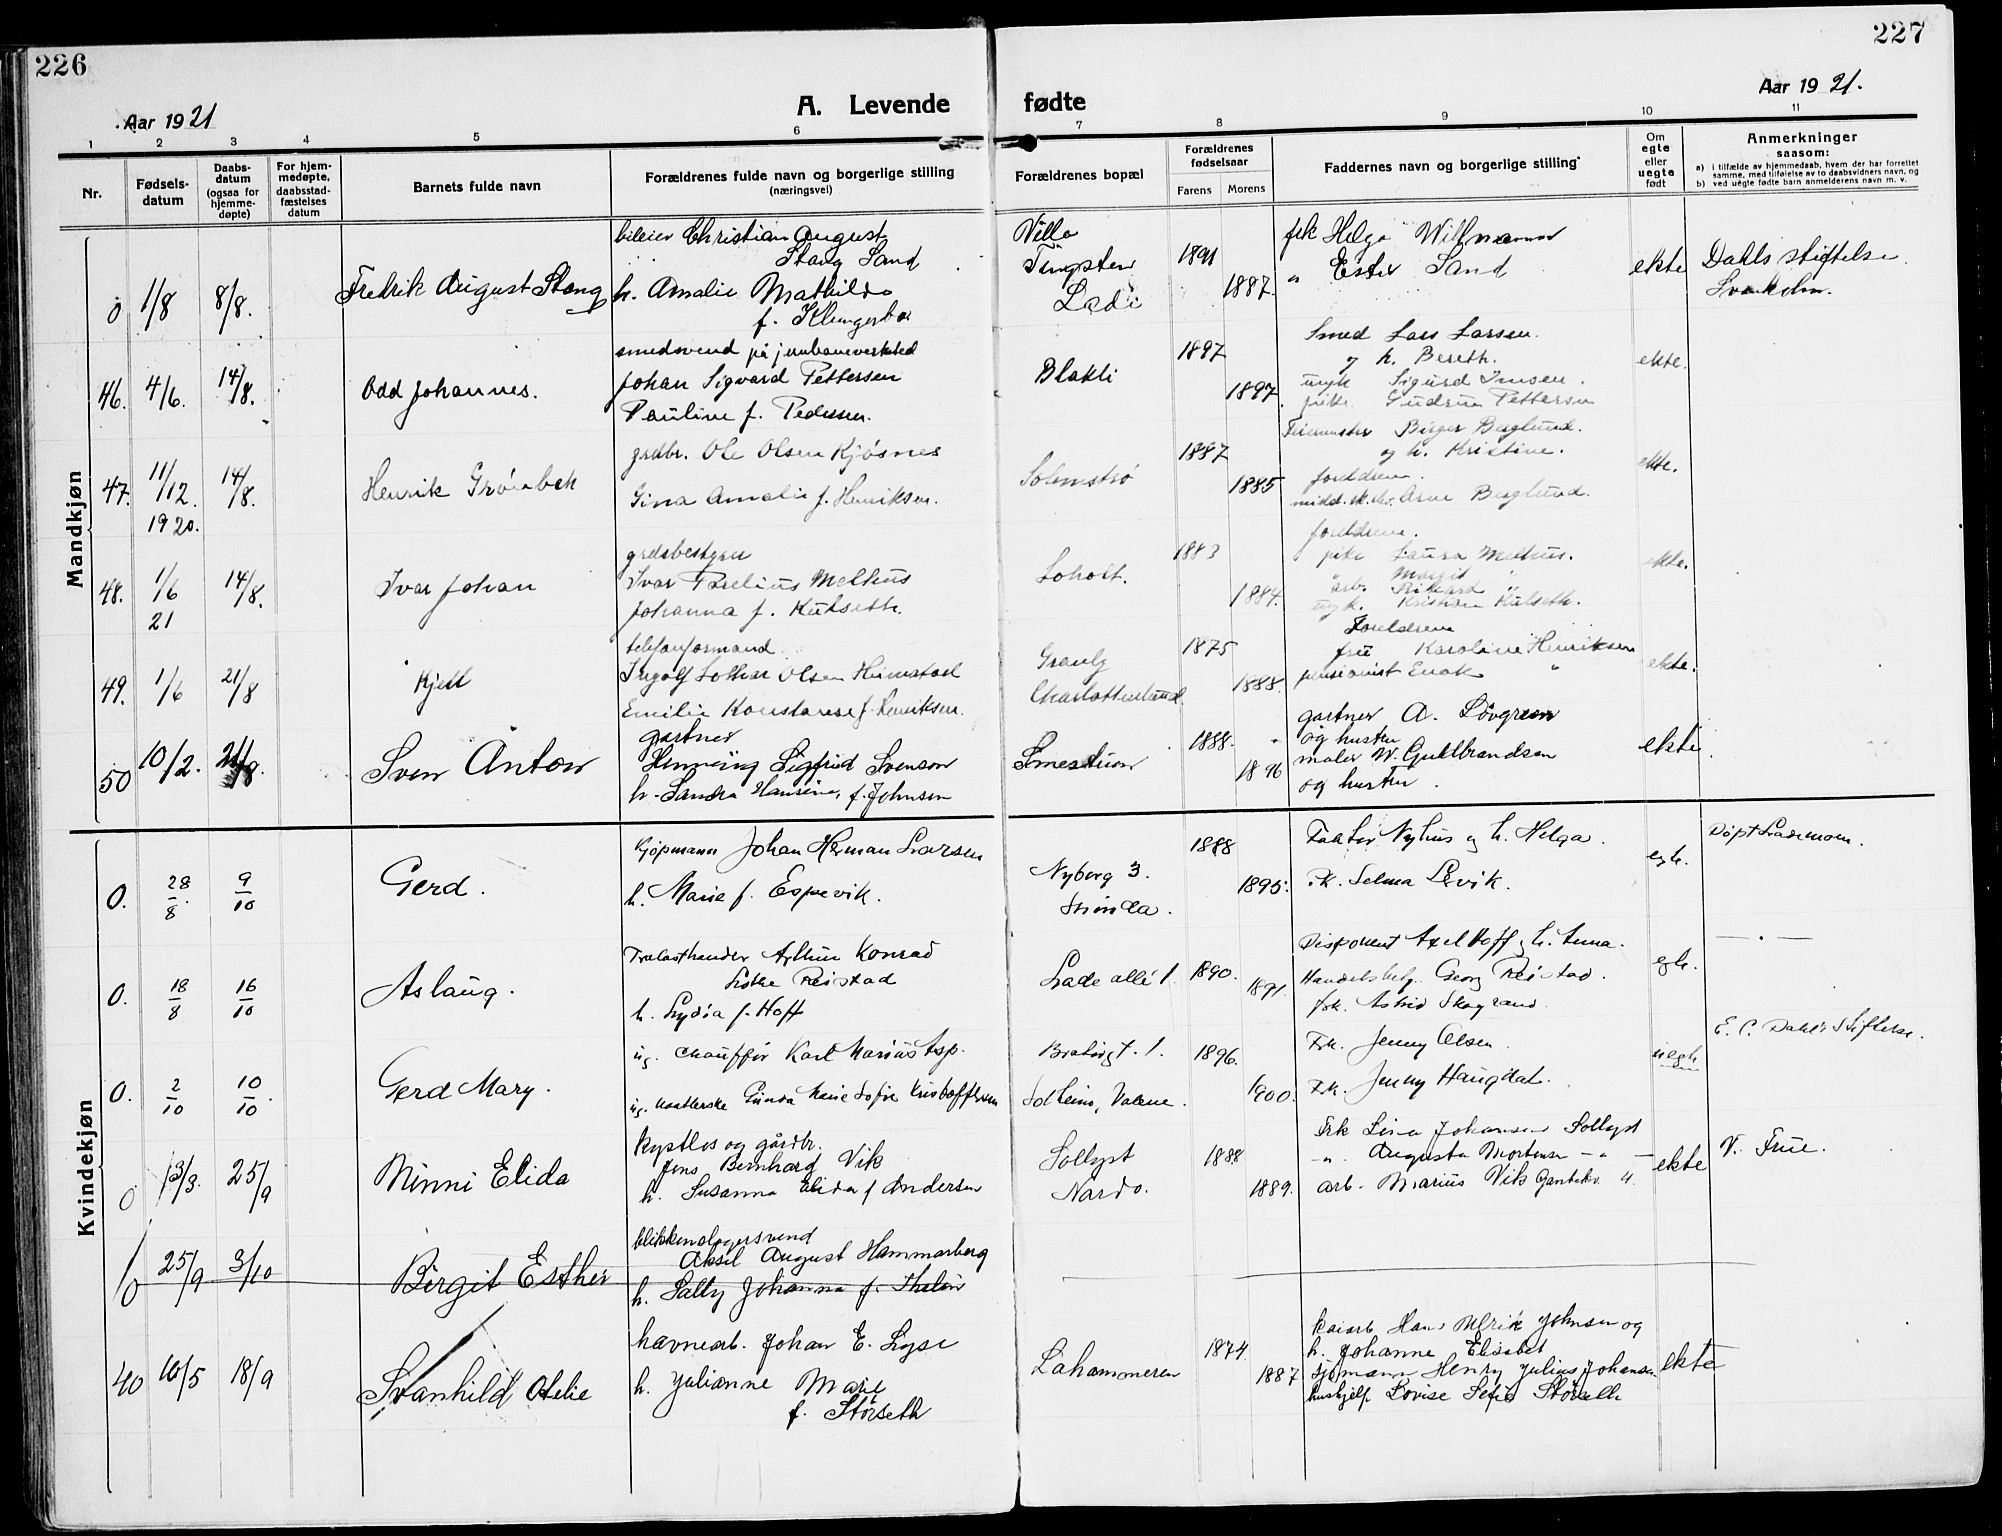 226
227
Aar 1921
A. Levende fødte
Aar 1921.
1 2 3 4 5 6 7 8 9 10 11
Nr.
Fødsels-datum
Daabs-datum (ogsaa for hjemme-døpte)
For hjem-medøpte, daabsstad-fæstelses datum
Barnets fulde navn
Forældrenes fulde navn og borgerlige stilling (næringsvei)
Forældrenes bopæl
Forældrenes fødselsaar
Farens Morens
Faddernes navn og borgerlige stilling
Om egte eller uegte født
Anmerkninger saasom:
a) i tilfælde av hjemmedaab, hvem der har forrettet samme, med tilføielse av to daabsvidners navn, og
b) ved uegte fødte barn anmelderens navn m. v.
Mandkjøn
0 1/8 8/8. Fredrik August Stang
bileier Christian August
Stang Sand
h. Amalie Mathilde
f. Klungerbo
Villa
Tungsten
Lade
1891 1887.
frk Helga Willmann
" Ester Sand
ekte
Dahls stiftelse.
46. 4/6. 14/8. Odd Johannes.
smedsvend på jernbaneverksted
Johan Sigvard Pettersen
Pauline f. Pedersen.
Blakli
1897 1897.
Smed Lars Larsen.
og h. Bereth.
ungk Sigurd Imsen.
pike Gudrun Pettersen
ekte.
47. 11/12. 1920. 14/8. Henrik Grönbek
grdbr. Ole Olsen Kjøsnes
Gina Amalie f. Henriksen.
Solmstrø
1887 1885
Feiermester Birger Berglund.
og h. Kristine.
foreldrene
midd.sk.elev. Arne Berglund.
ekte.
48. 1/6 21 14/8. Ivar Johan
grdsbestyrer
Ivar Melhus
Johanna f. Kulseth.
Loholt.
1883 1884.
foreldrene.
pike Laura Melhus.
" Margit "
arb. Rikard "
ungk. Kristian Kulseth.
ekte.
49. 1/6 21/8 Kjell
telefonformand
Ingolf Lothar Olsen Heimstad
Emilie Konstanse f. Henriksen.
Granly
Charlottenlund.
1875 1888.
Foreldrene
fru Karoline Henriksen
pensionist Enok "
ekte.
50 10/2. 21/8. Sven Anton
gartner
Henning Sigfrid Svenson
h. Sandra Hansine, f. Johnsen
1888. 1896
gartner A. Lövgren
og hustru
maler W. Gulbrandsen
og hustru.
ekte.
Kvindekjøn
0. 28/8. 9/10 Gerd.
Kjøpmann Johan Herman Larsen
h. Marie f. Espevik.
Nyborg 3.
Strinda.
1888 1895.
Nyhus og h. Helga.
Fk. Selma Levik.
egte.
Døpt Lademoen.
0. 18/8 16/10 Aslaug.
Trælasthandler Arthur Konrad
Reistad
h. Lydia f. Hoff
Lade allé 1.
1890. 1891.
Disponent Axel Hoff og h. Anna.
Handelsbetj. Georg Reistad.
frk. Astrid Skogrand.
egte.
— . —
0. 2/10 10/10. Gerd Mary.
ug. chauffør Karl Marius Asp.
ug. Gunda Marie Sofie Kristoffersen
Bratörgt. 1.
Solheim,
1896. 1900.
Frk. Jenny Olsen.
Frk. Jenny Haugdal.
uegte
E. C. Dahls Stiftelse.
0 13/3. 25/9 Minni Elida
kystlos og gårdbr.
Jens Bernhard Vik
h. Susanna Elida f Andersen
Sollyst
Nardo.
1888 1889.
Frk Lina Johansen Sollyst
— " — Augusta Mortensen — " —
arb. Marius Vik "
ekte
V. Frue.
0 25/9 3/10 Birgit Esther
blikkenslagersvend
Aksel August Hammarberg
h. Sally Johanna f. Thelin
40 10/5 18/9 Svanhild Otelie
havnearb. Johan E. Lyse
h. Julianne Marie
f. Störseth
Lahammeren
1874 1887
kaiarb Hans Ulrik Johnsen og
h. Johanne Elisabet
sjømann Henry Julius Johansen
hushjelp Lovise Sofie Störseth
ekte